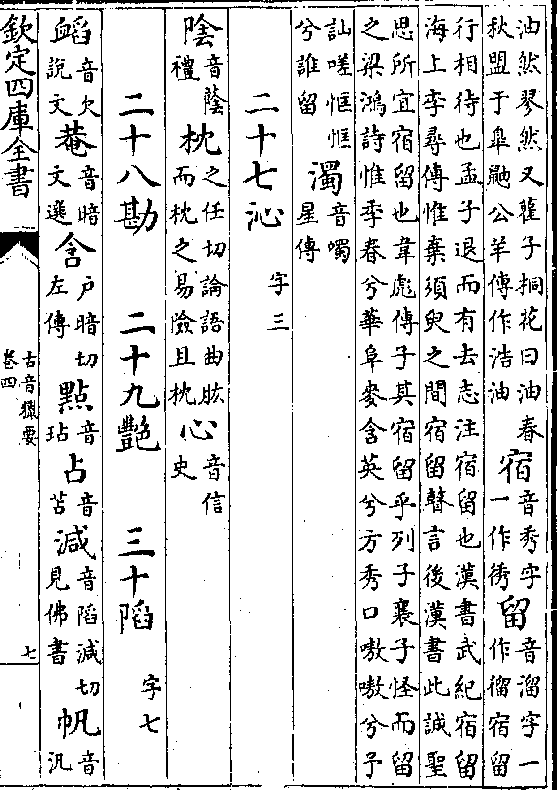 油然琴然又雚子桐花曰油春秋盟于臯鼬公羊傳作浩油宿音秀字一作留音溜字一作宿留
行相待也孟子退而有去志注宿留也漢書武紀宿留海上李尋傳惟棄須臾之間宿留瞽言後漢書此誠聖
思所宜宿留也韋彪傳子其宿留乎列子襄子怪而留之梁鴻詩惟季春兮華阜麥含英兮方秀口嗷嗷兮予
訕嗟恇恇兮誰留濁音噣星傳
二十七沁 字三
陰音蔭禮枕之任切論語曲肱而枕之易險且枕心音信史
二十八勘 二十九艷 三十陷 字七
音欠說文菴音暗文選含户暗切左傳點音玷占音苫減音陷減切見佛書帆音汎
欽定四庫全書
古音獵要
卷四
七